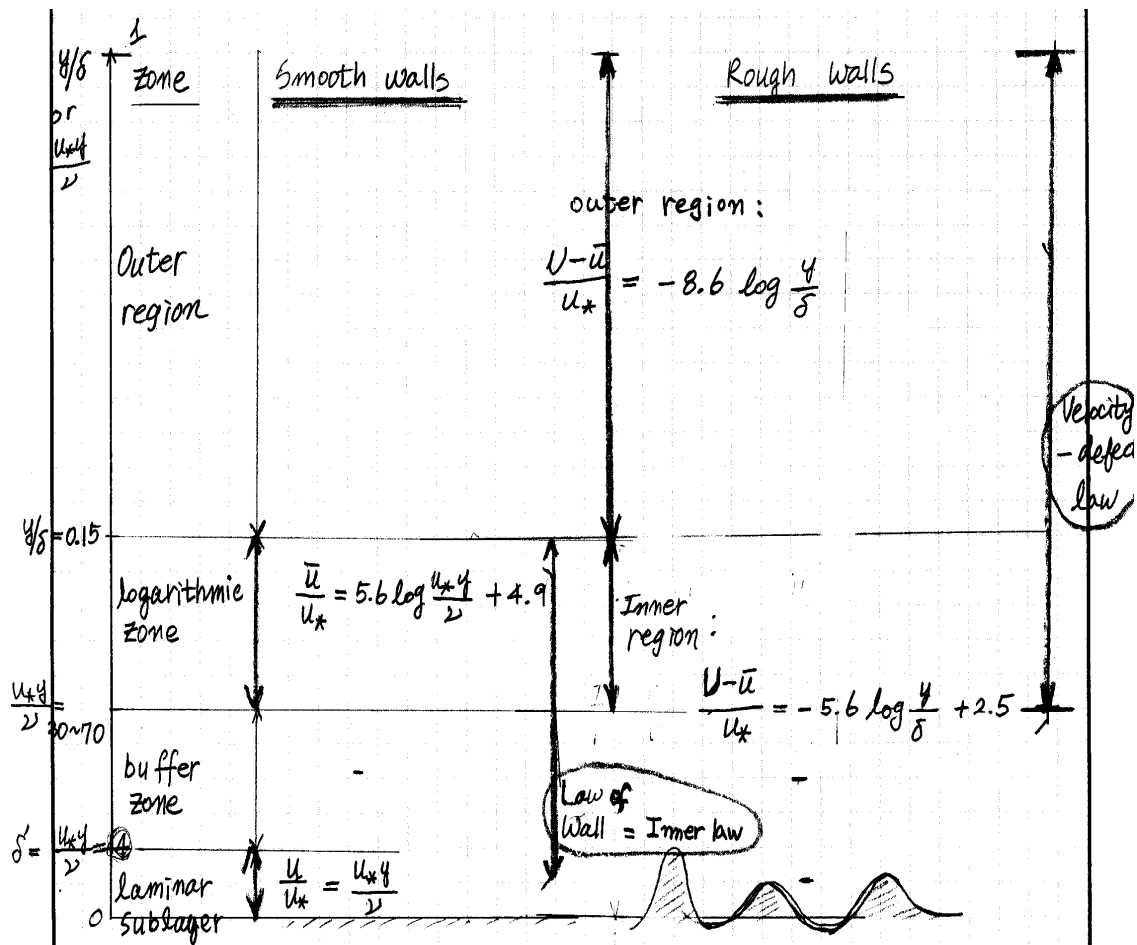 1
y/δ
or
u*y/ν
zone
Smooth walls
Rough walls
outer region :
(U-ū)/u* = -8.6 log y/δ
Outer
region
Velocity
- defec
law
y/δ = 0.15
logarithmic
zone
ū/u* = 5.6 log u*y/ν + 4.9
Inner
region :
(U-ū)/u* = -5.6 log y/δ + 2.5
u*y/ν =
30~70
buffer
zone
Law of
Wall = Inner law
δ' = u*y/ν = 4
laminar
sublager
u/u* = u*y/ν
0